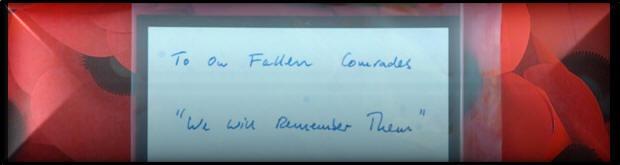 To Our Fallen Comrades
"We Will Remember Them"